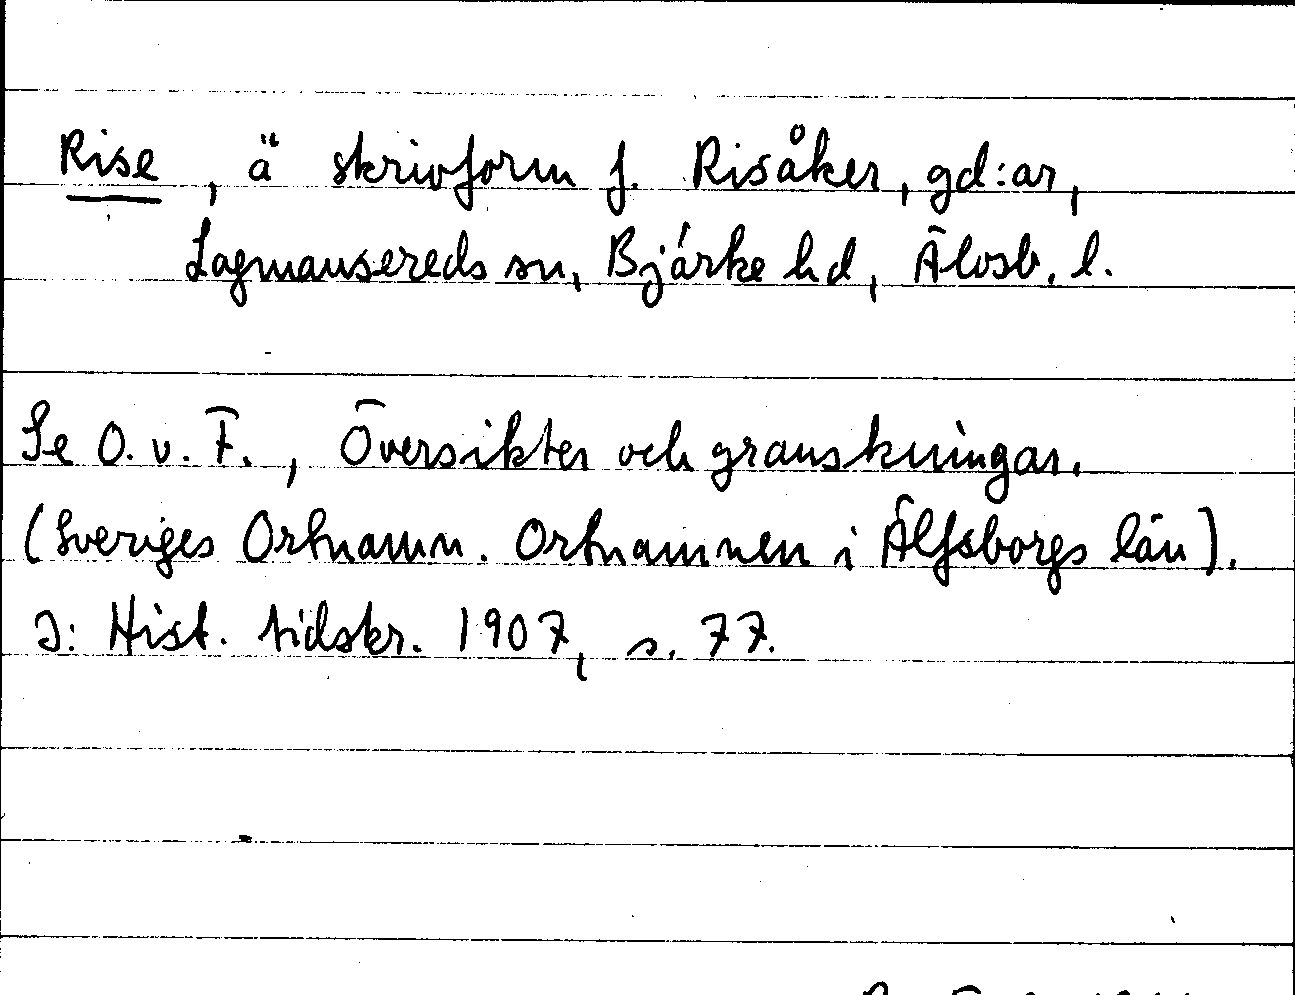 Rise, ä skrivform f. Risåker, gd:ar,
Lagmansereds sn, Bjärke hd, Älvsb. l.
Se O. v. F., Översikter och granskningar.
(Sveriges Ortnamn. Ortnamnen i Älfsborgs län).
I: Hist. tidskr. 1907, s. 77.